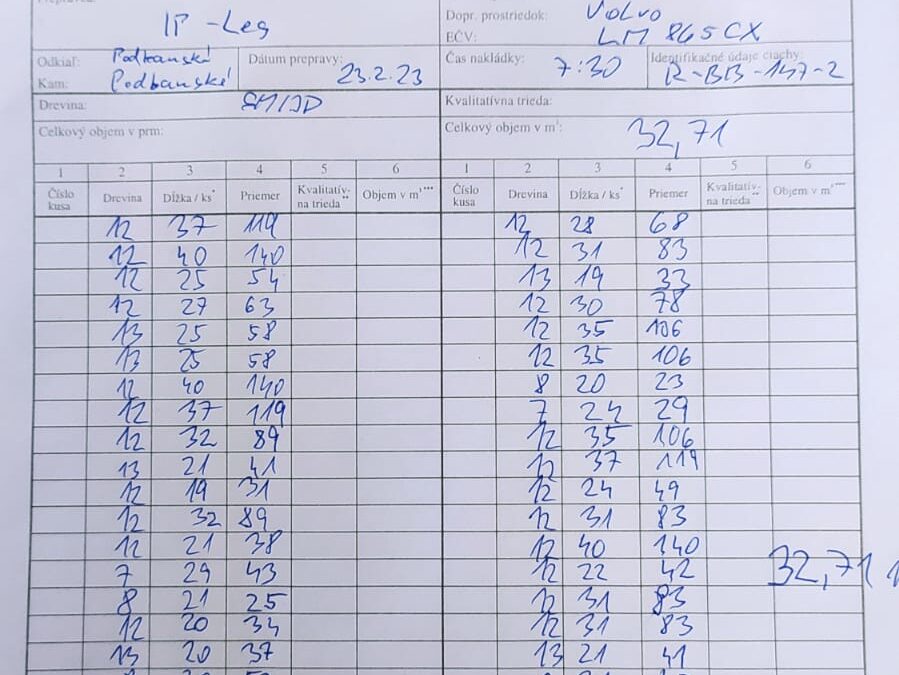 IP - Les
Dopr. prostriedok: Volvo
EČV: LM 865CX
Odkiaľ: Podbanské
Kam: Podbanské
Dátum prepravy: 23.2.23
Čas nakládky: 7:30
Identifikačné údaje ciachy: R-BB-147-2
Drevina: SM/JD
Kvalitatívna trieda:
Celkový objem v prm:
Celkový objem v m³: 32,71
1 2 3 4 5 6 1 2 3 4 5 6
Číslo kusa Drevina Dĺžka / ks* Priemer Kvalitatív- na trieda** Objem v m³*** Číslo kusa Drevina Dĺžka / ks* Priemer Kvalitatív- na trieda** Objem v m³***
12 37 119 12 28 68
12 40 140 12 31 83
12 25 54 13 19 33
12 27 63 12 30 78
13 25 58 12 35 106
13 25 58 12 35 106
12 40 140 8 20 23
12 37 119 7 24 29
12 32 89 12 35 106
13 21 41 12 37 119
12 19 31 12 24 49
12 32 89 12 31 83
12 21 38 12 40 140
7 29 43 12 22 42 32,71
8 21 25 12 31 83
12 20 34 12 31 83
13 20 37 13 21 41